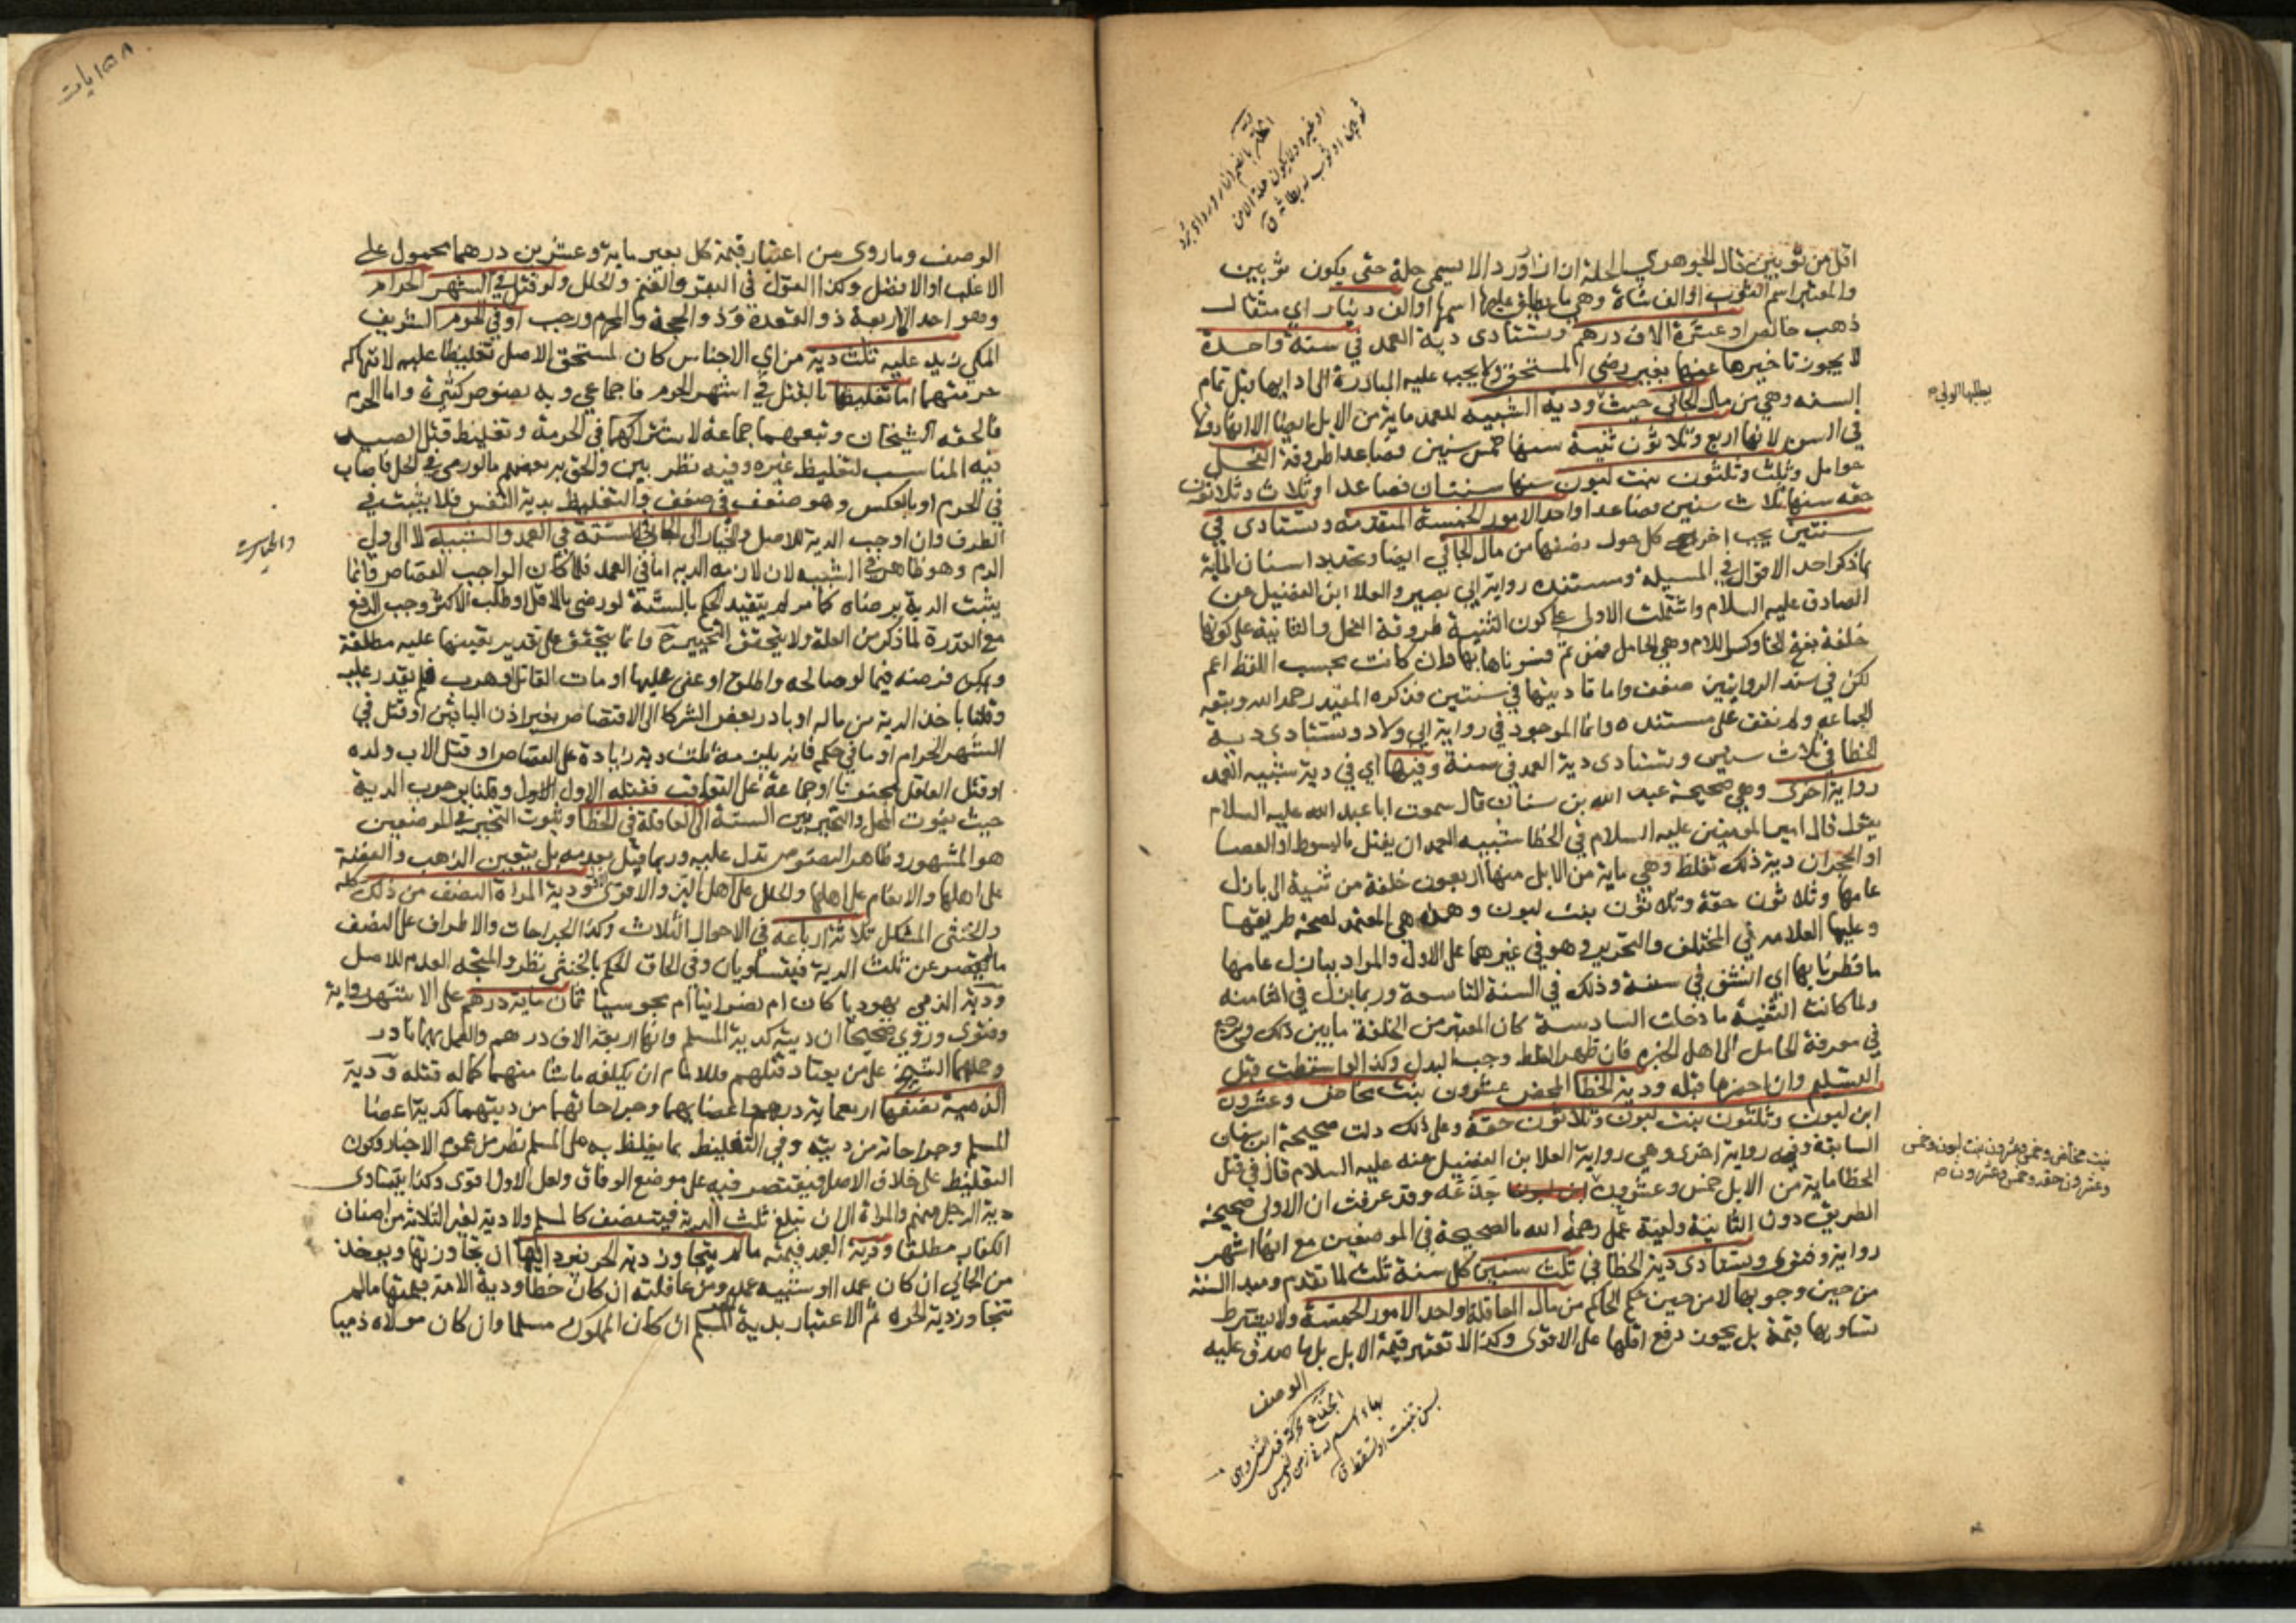 اقل من ثوبين قال الجوهري الحلة ازار ورداء لا يسمى حلة حتى يكون ثوبين
والمعتبر اسم الثوب او الف شاة وهي ما يطلق عليها اسمها او الف دينار اي مثقال
ذهب خالص او عشرة الاف درهم وتستادى دية العمد في سنة واحدة
لا يجوز تاخيرها عنها بغير رضى المستحق ولا يجب عليه المبادرة الى ادايها قبل تمام
السنه وهي من مال الجاني حيث ودية الشبيه للعمد ماية من الابل ايضا الا انها دونها
في السن لانها اربع وثلاثون ثنية سنها خمس سنين فصاعدا طروقة الفحل
حوامل وثلث وثلثون بنت لبون سنها سنتان فصاعدا وثلاث وثلاثون
حقه سنها ثلاث سنين فصاعدا او احد الامور الخمسة المتقدمة وتستادى في
سنتين يجب اخر كل حول نصفها من مال الجاني ايضا وتحديد اسنان الماية
بما ذكر احد الاقوال في المسيله ومستنده رواية ابي بصير والعلا ابن الفضيل عن
الصادق عليه السلام واشتملت الاولى على كون الثنية طروقة الفحل والثانية على كونها
خلفة بفتح الخا وكسر اللام وهي الحامل فمن ثم فسرناها بها وان كانت بحسب اللفظ اعم
لكن في سند الروايتين ضعف واما تاديتها في سنتين فذكره المفيد رحمه الله وتبعه
الجماعه ولم نقف على مستنده وانما الموجود في رواية ابي ولاد وتستادى دية
الخطا في ثلاث سنين وتستادى دية العمد في سنة وفيها اي في دية شبيه العمد
رواية اخرى وهي صحيحة عبد الله بن سنان قال سمعت ابا عبد الله عليه السلام
يقول قال امير المومنين عليه السلام في الخطا شبيه العمد ان يقتل بالسوط او العصا
او الحجر ان دية ذلك تغلظ وهي ماية من الابل منها اربعون خلفة من ثنية الى بازل
عامها وثلاثون حقة وثلاثون بنت لبون وهذه هي المعتمد لصحة طريقها
وعليها العلامه في المختلف والتحرير وهو في غيرهما على الاول والمراد ببازل عامها
ما فطر نابها اي انشق في سنة وذلك في السنة التاسعة وربما بزل في الثامنه
ولما كانت الثنية ما دخلت السادسة كان المعتبر من الخلفة ما بين ذلك ويرجع
في معرفة الحامل الى اهل الخبره فان ظهر الغلط وجب البدل وكذا لو اسقطت قبل
التسليم وان احضرها قبله ودية الخطا المحض عشرون بنت مخاض وعشرون
ابن لبون وثلثون بنت لبون وثلاثون حقة وعلى ذلك دلت صحيحة ابن سنان
السابقة وفيه رواية اخرى وهي رواية العلا بن الفضيل عنه عليه السلام قال في قتل
الخطا ماية من الابل خمس وعشرون جذعة وقد عرفت ان الاولى صحيحة
الطريق دون الثانية وليته عمل رحمة الله بالصحيحة في الموضعين مع انها اشهر
رواية وفتوى وتستادى دية الخطا في ثلث سنين كل سنة ثلث لما تقدم ومبدا السنة
من حين وجوبها لا من حين حكم الحاكم من مال العاقلة او احد الامور الخمسة ولا يشترط
تساويها قيمة بل يجوز دفع اقلها على الاقوى وكذا لا تعتبر قيمة الابل بل ما صدق عليه
الوصف
يطلبها الولي
بنت مخاض وخمس وعشرون بنت لبون وخمس
وعشرون حقه وخمس وعشرون م
الوصف وما روى من اعتبار قيمة كل بعير ماية وعشرين درهما محمول على
الاغلب او الافضل وكذا القول في البقر والغنم والحلل ولو قتل في الشهر الحرام
وهو احد الاربعة ذو القعدة وذو الحجة والمحرم ورجب او في الحرم الشريف
المكي زيد عليه ثلث دية من اي الاجناس كان لمستحق الاصل تغليظا عليه لانتهاكه
حرمتهما اما تغليظها بالقتل في اشهر الحرم فاجماعي وبه نصوص كثيرة واما الحرم
فالحقه الشيخان وتبعهما جماعة لاشتراكهما في الحرمة وتغليظ قتل الصيد
فيه المناسب لتغليظ غيره وفيه نظر بين والحق به بعضهم ما لو رمى في الحل فاصاب
في الحرم او بالعكس وهو ضعيف في ضعف والتغليظ بدية النفس فلا يثبت في
الطرف وان اوجب الدية للاصل والخيار الى الجاني في الستة في العمد والشبيه لا الى ولي
الدم وهو ظاهر في الشبيه لان لازمه الدية اما في العمد فلما كان الواجب القصاص فانما
يثبت الدية برضاه كما مر لم يتقيد الحكم بالستة لو رضي بالاقل او طلب الاكثر وجب الدفع
مع القدرة لما ذكر من العلة ولا يتحقق التخيير ح وانما يتحقق على تقدير تعينها عليه مطلقة
ويمكن فرضه فيما لو صالحه واطلق او عفى عليها او مات القاتل او هرب فلم يقدر عليه
وقلنا باخذ الدية من ماله او بادر بعض الشركا الى الاقتصاص بغير اذن الباقين او قتل في
الشهر الحرام او ما في حكمه فانه يلزمه ثلث دية زيادة على القصاص او قتل الاب ولده
او قتل العاقل مجنونا او جماعة على التعاقب فقتله الاول الاول وقلنا بوجوب الدية
حيث يفوت المحل والتخيير بين الستة الى العاقلة في الخطا وثبوت التخيير في الموضعين
هو المشهور وظاهر النصوص تدل عليه وربما قيل بعدمه بل يتعين الذهب والفضة
على اهلها والانعام على اهلها والحلل على اهل البز والاقوى ودية المراة النصف من ذلك كله
والخنثى المشكل ثلاثة ارباعه في الاحوال الثلاث وكذا الجراحات والاطراف على النصف
ما لم يقصر عن ثلث الدية فيتساويان وفي الحاق الحكم بالخنثى نظر والمتجه العدم للاصل
ودية الذمي يهوديا كان ام نصرانيا ام مجوسيا ثمان ماية درهم على الاشهر رواية
وفتوى وروي صحيحا ان ديته كدية المسلم وانها اربعة الاف درهم والعمل بهما نادر
وحملهما الشيخ على من يعتاد قتلهم وللامام ان يكلفه ما شا منهما كما له قتله ودية
الذمية نصفها اربعماية درهم اعضايهما وجراحاتهما من ديتهما كدية اعضا
المسلم وجراحاته من ديته وفي التغليظ بما يغلظ به على المسلم نظر من عموم الاخبار وكون
التغليظ على خلاف الاصل فيقتصر فيه على موضع الوفاق ولعل الاول اقوى وكذا يتساوى
دية الرجل منهم والمراة الى ان تبلغ ثلث الدية فيتنصف كالمسلم ولا دية لغير الثلاثة من اصناف
الكفار مطلقا ودية العبد قيمته ما لم يتجاوز دية الحر فيرد اليها ان تجاوزتها ويوخذ
من الجاني ان كان عمدا او شبيه عمد ومن عاقلته ان كان خطا ودية الامة قيمتها ما لم
تتجاوز دية الحره ثم الاعتبار بدية المسلم ان كان المملوك مسلما وان كان مولاه ذميا